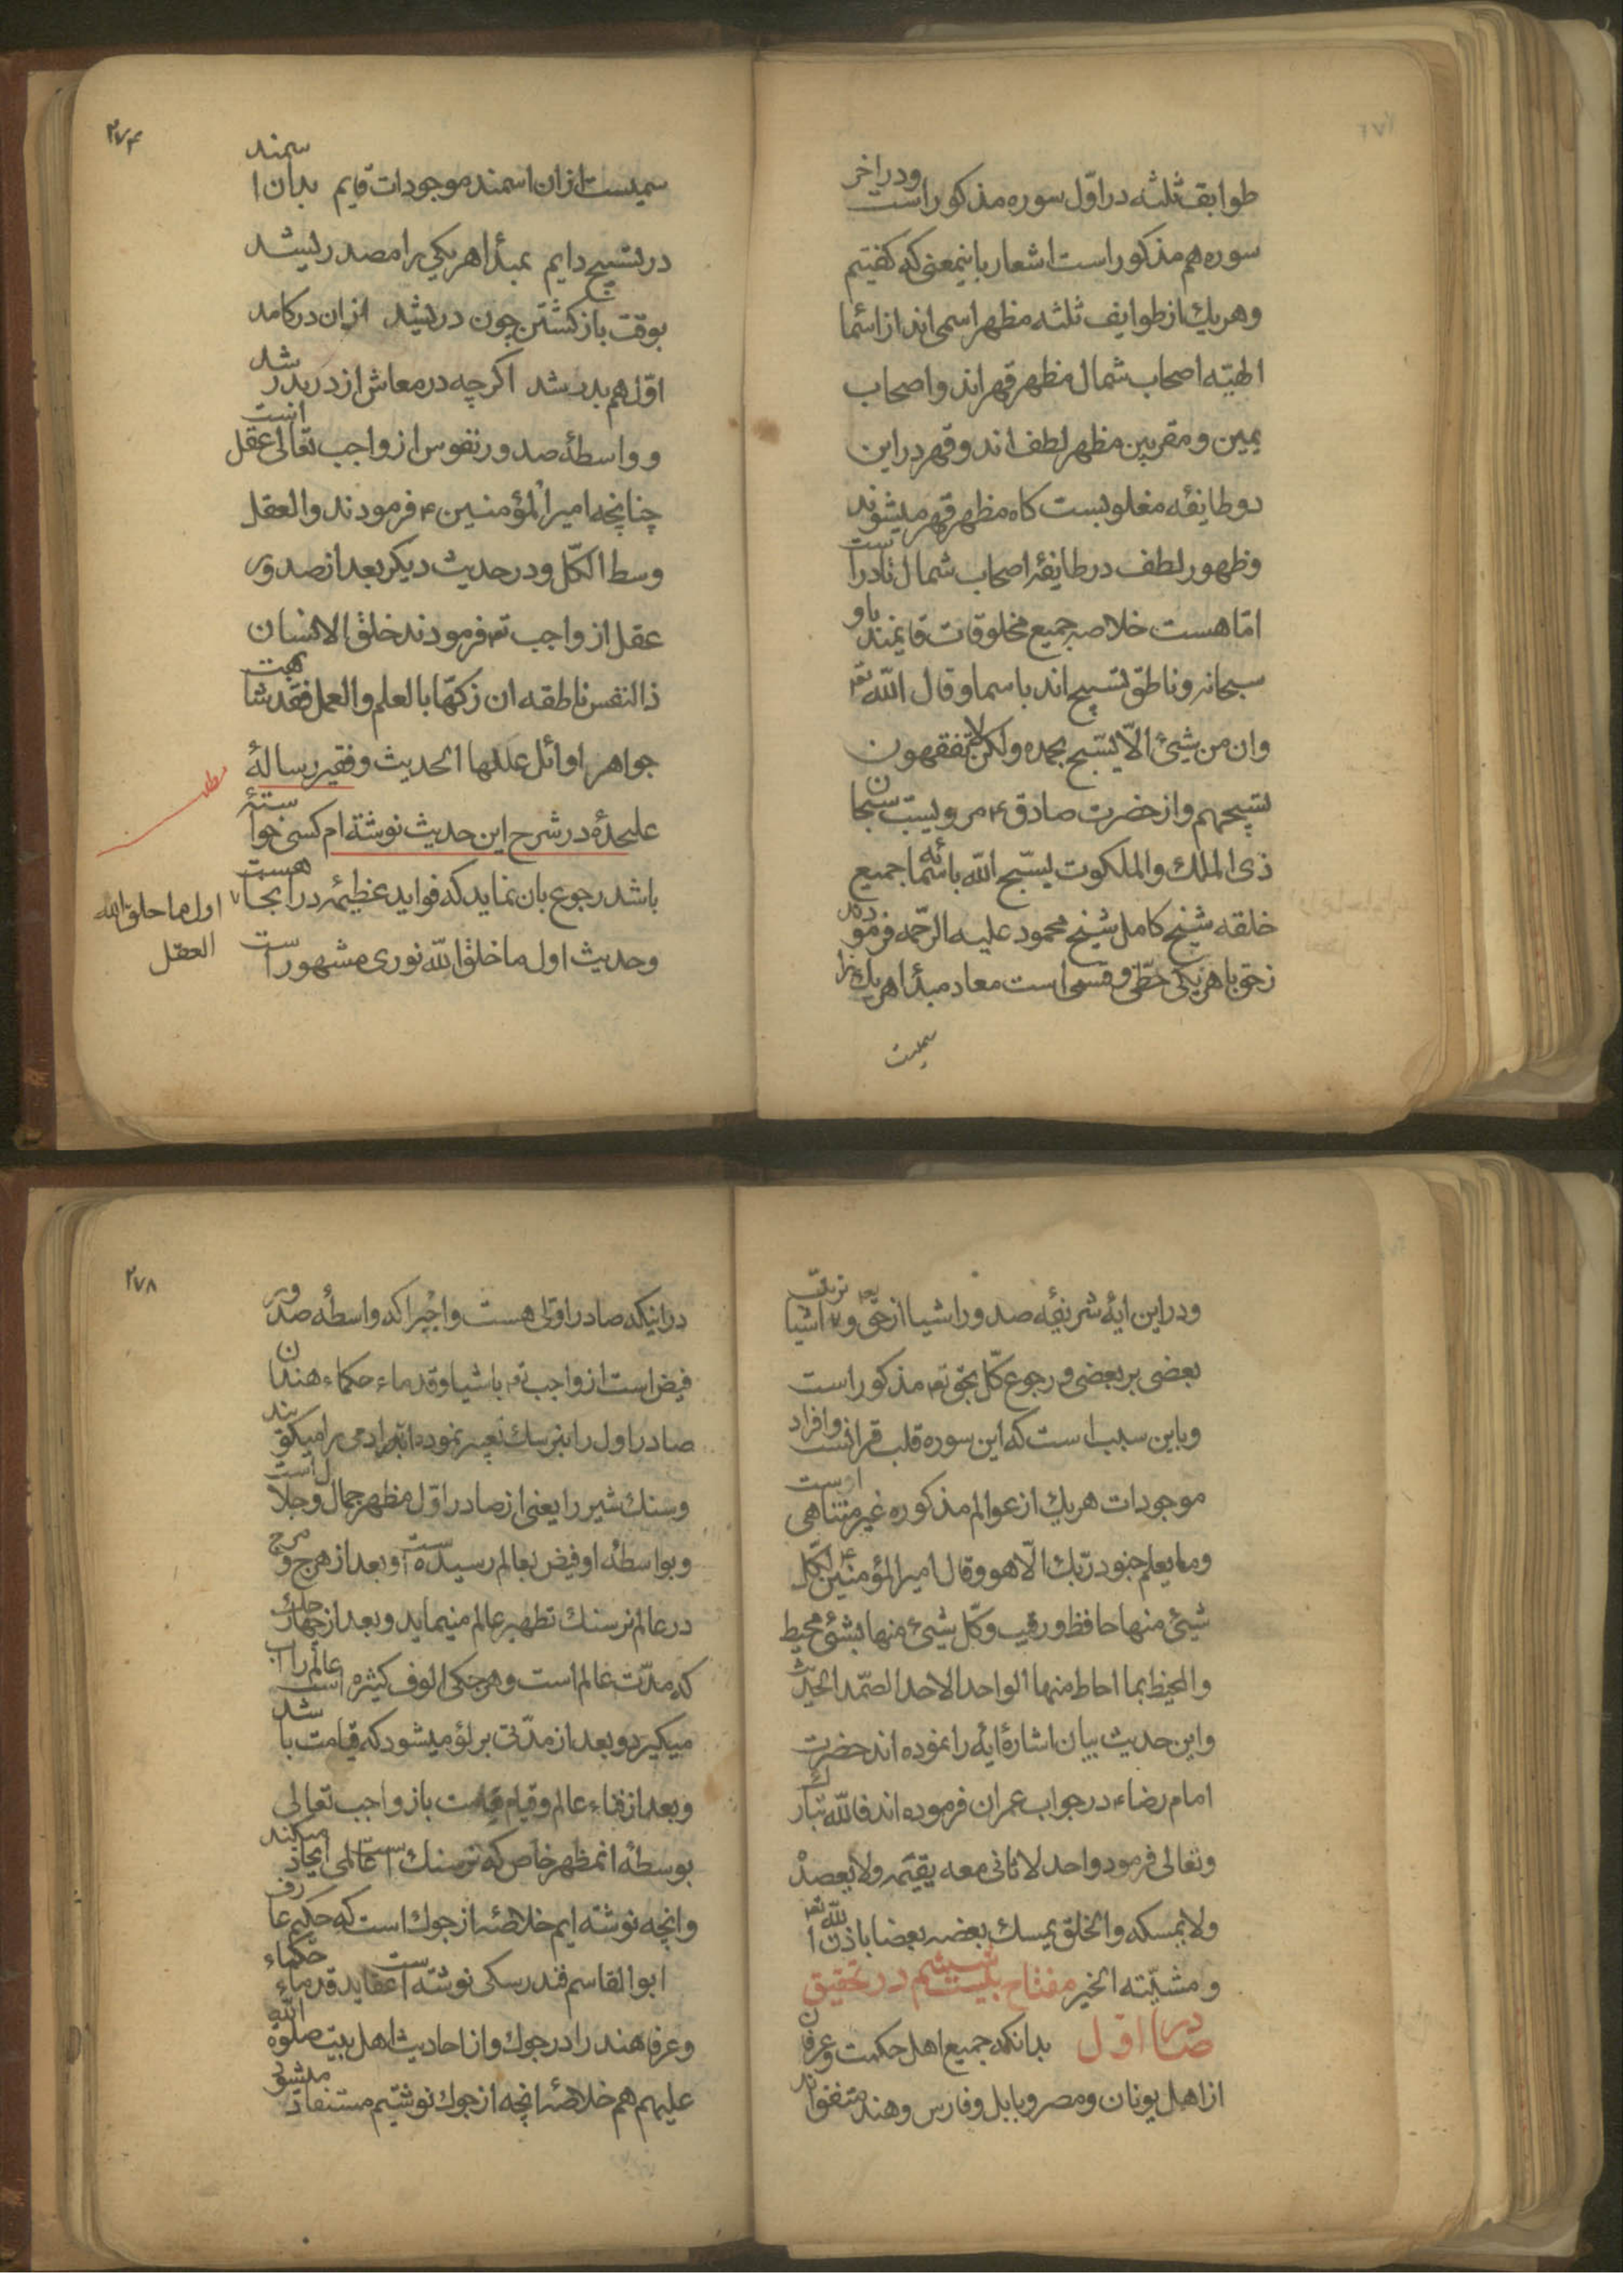 طوایف ثلثه در اوّل سوره مذکور است و در اخر
سوره هم مذکور است اشعار باینمعنی که گفتیم
و هر یك از طوایف ثلثه مظهر اسمی اند از اسٔما
الهیّه اصحاب شمال مظهر قهر اند و اصحاب
یمین و مقربین مظهر لطف اند و قهر در این
دو طایفه مغلوبست کاه مظهر قهر میشوند
و ظهور لطف در طایفهٔ اصحاب شمال نادر است
امّا هست خلاصه جمیع مخلوقات قایمند باو
سبحانه و ناطق بتسبیح اند باسما و قال الله تع
وان من شیئ الّا یسّبح بحمده ولکن لا تفقهون
تسبیحهم و از حضرت صادق ع مرویست سبحان
ذی الملك والملکوت یسّبح الله باسمائه جمیع
خلقه شیخ کامل شیخ محمود علیه الرّحمه فرموده
زحق با هر یکی حظّی و قسمی است معاد و مبدأ هر یك را
سمیست
۲۷۴
سمیست از ان اسمند موجودات قایم بدان اسمند
در تسبیح دایم بمبدٔا هر یکی را مصدر لیشد
بوقت باز کشتن چون در لیشد از ان در کامد
اوّل هم بدر شد اکر چه در معاش از در بدر شد
و واسطهٔ صدور نفوس از واجب تعالی عقل انست
چنانچه امیر المؤمنین ع فرمودند والعقل
وسط الکّل و در حدیث دیکر بعد از صدور
عقل از واجب تع فرمودند خلق الانسان
ذا لنفس ناطقه ان زکّها بالعلم والعمل فقد شابهت
جواهر اوائل عللها الحدیث و فقیر رسالهٔ
علیحدهٔ در شرح این حدیث نوشته ام کسی خواسته
باشد رجوع بان نماید که فواید عظیمه در انجا هست
و حدیث اول ما خلق الله نوری مشهور است
اول ما خلق الله
العقل
و در این ایهٔ شریفهٔ صدور اشیا از حق تع و ترتّب اشیا
بعضی بر بعضی و رجوع کّل بحق تع مذکور است
و باین سبب است که این سوره قلب قرانست و افراد
موجودات هر یك از عوالم مذکوره غیر متناهی است
وما یعلم جنود ربّك الّا هو و قال امیر المؤمنین ع لکّل
شیئ منها حافظ و رقیب و کّل شیئ منها بشئ محیط
والمحیط بما احاط منها الواحد الاحد الصّمد الحدیث
و این حدیث بیان اشارهٔ ایه را نموده اند حضرت
امام رضاء در جواب عمران فرموده اند فالله تبارك
و تعالی فرمود واحد لا ثانی معه یقیمه ولا یعضده
ولا یمسکه والخلق یمسك بعضه بعضا باذن الله تع
و مشیّته الخیر مفتاح بیست ششم در تحقیق
صادر اوّل بدانکه جمیع اهل حکمت و عرفان
از اهل یونان و مصر و بابل و فارس و هند متفقو اند
۲۷۸
در اینکه صادر اوّلی هست واجبرا که واسطهٔ صدور
فیض است از واجب تع باشیا و قدماء حکماء هندان
صادر اول را بنر سنك تعبیر نموده اند ادمی را میکویند
و سنك شیر را یعنی از صادر اوّل مظهر جمال و جلال است
و بواسطهٔ او فیض بعالم رسیده است و بعد از هرج و مرج
در عالم نرسنك تطهیر عالم مینماید و بعد از چهار جك
که مدّت عالم است و هر جکی الوف کثیره است عالم را اب
میکیرد و بعد از مدّتی بر لؤ میشود که قیامت باشد
و بعد از فناء عالم و قیام قیامت باز واجب تعالی
بوسطهٔ انمظهر خاص که نرسنك است عالمی ایجاد میکند
و انچه نوشته ایم خلاصهٔ از جوك است که حکیم عارف
ابو القاسم فندرسکی نوشته است عقاید قدماء حکماء
و عرفا هند را در جوك و از احادیث اهل بیت صلوة الله
علیهم هم خلاصهٔ انچه از جوك نوشتیم مستفاد میشود